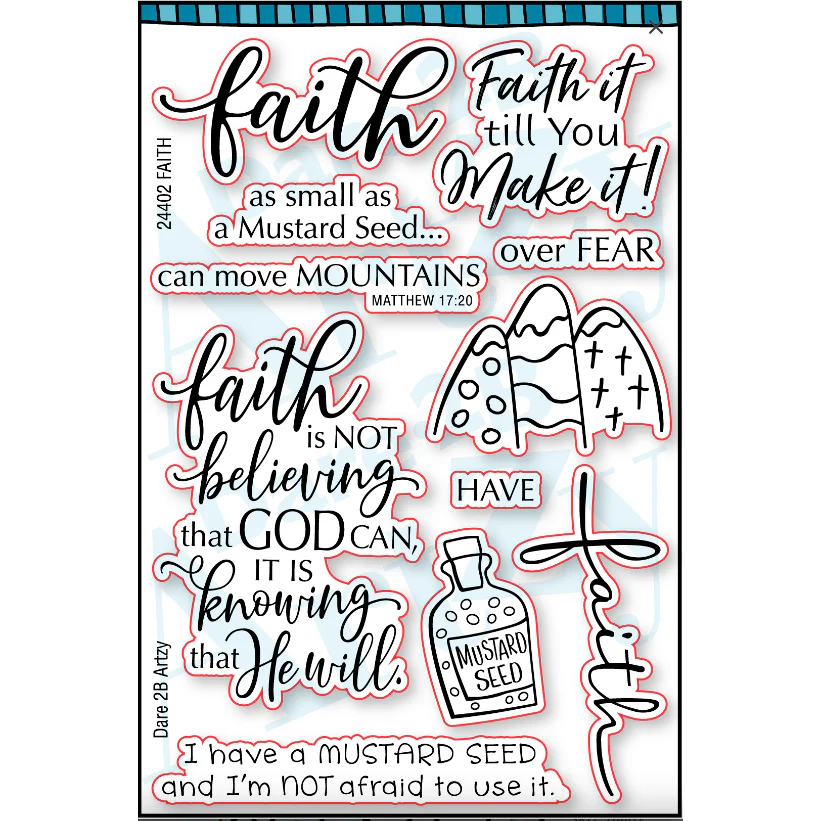 faith
as small as
a Mustard Seed...
can move MOUNTAINS
MATTHEW 17:20
Faith it
till You
Make it!
over FEAR
24402 FAITH
faith
is NOT
believing
that GOD CAN,
IT IS
knowing
that He will.
HAVE
faith
MUSTARD
SEED
Dare 2B Artzy
I have a MUSTARD SEED
and I'm NOT afraid to use it.